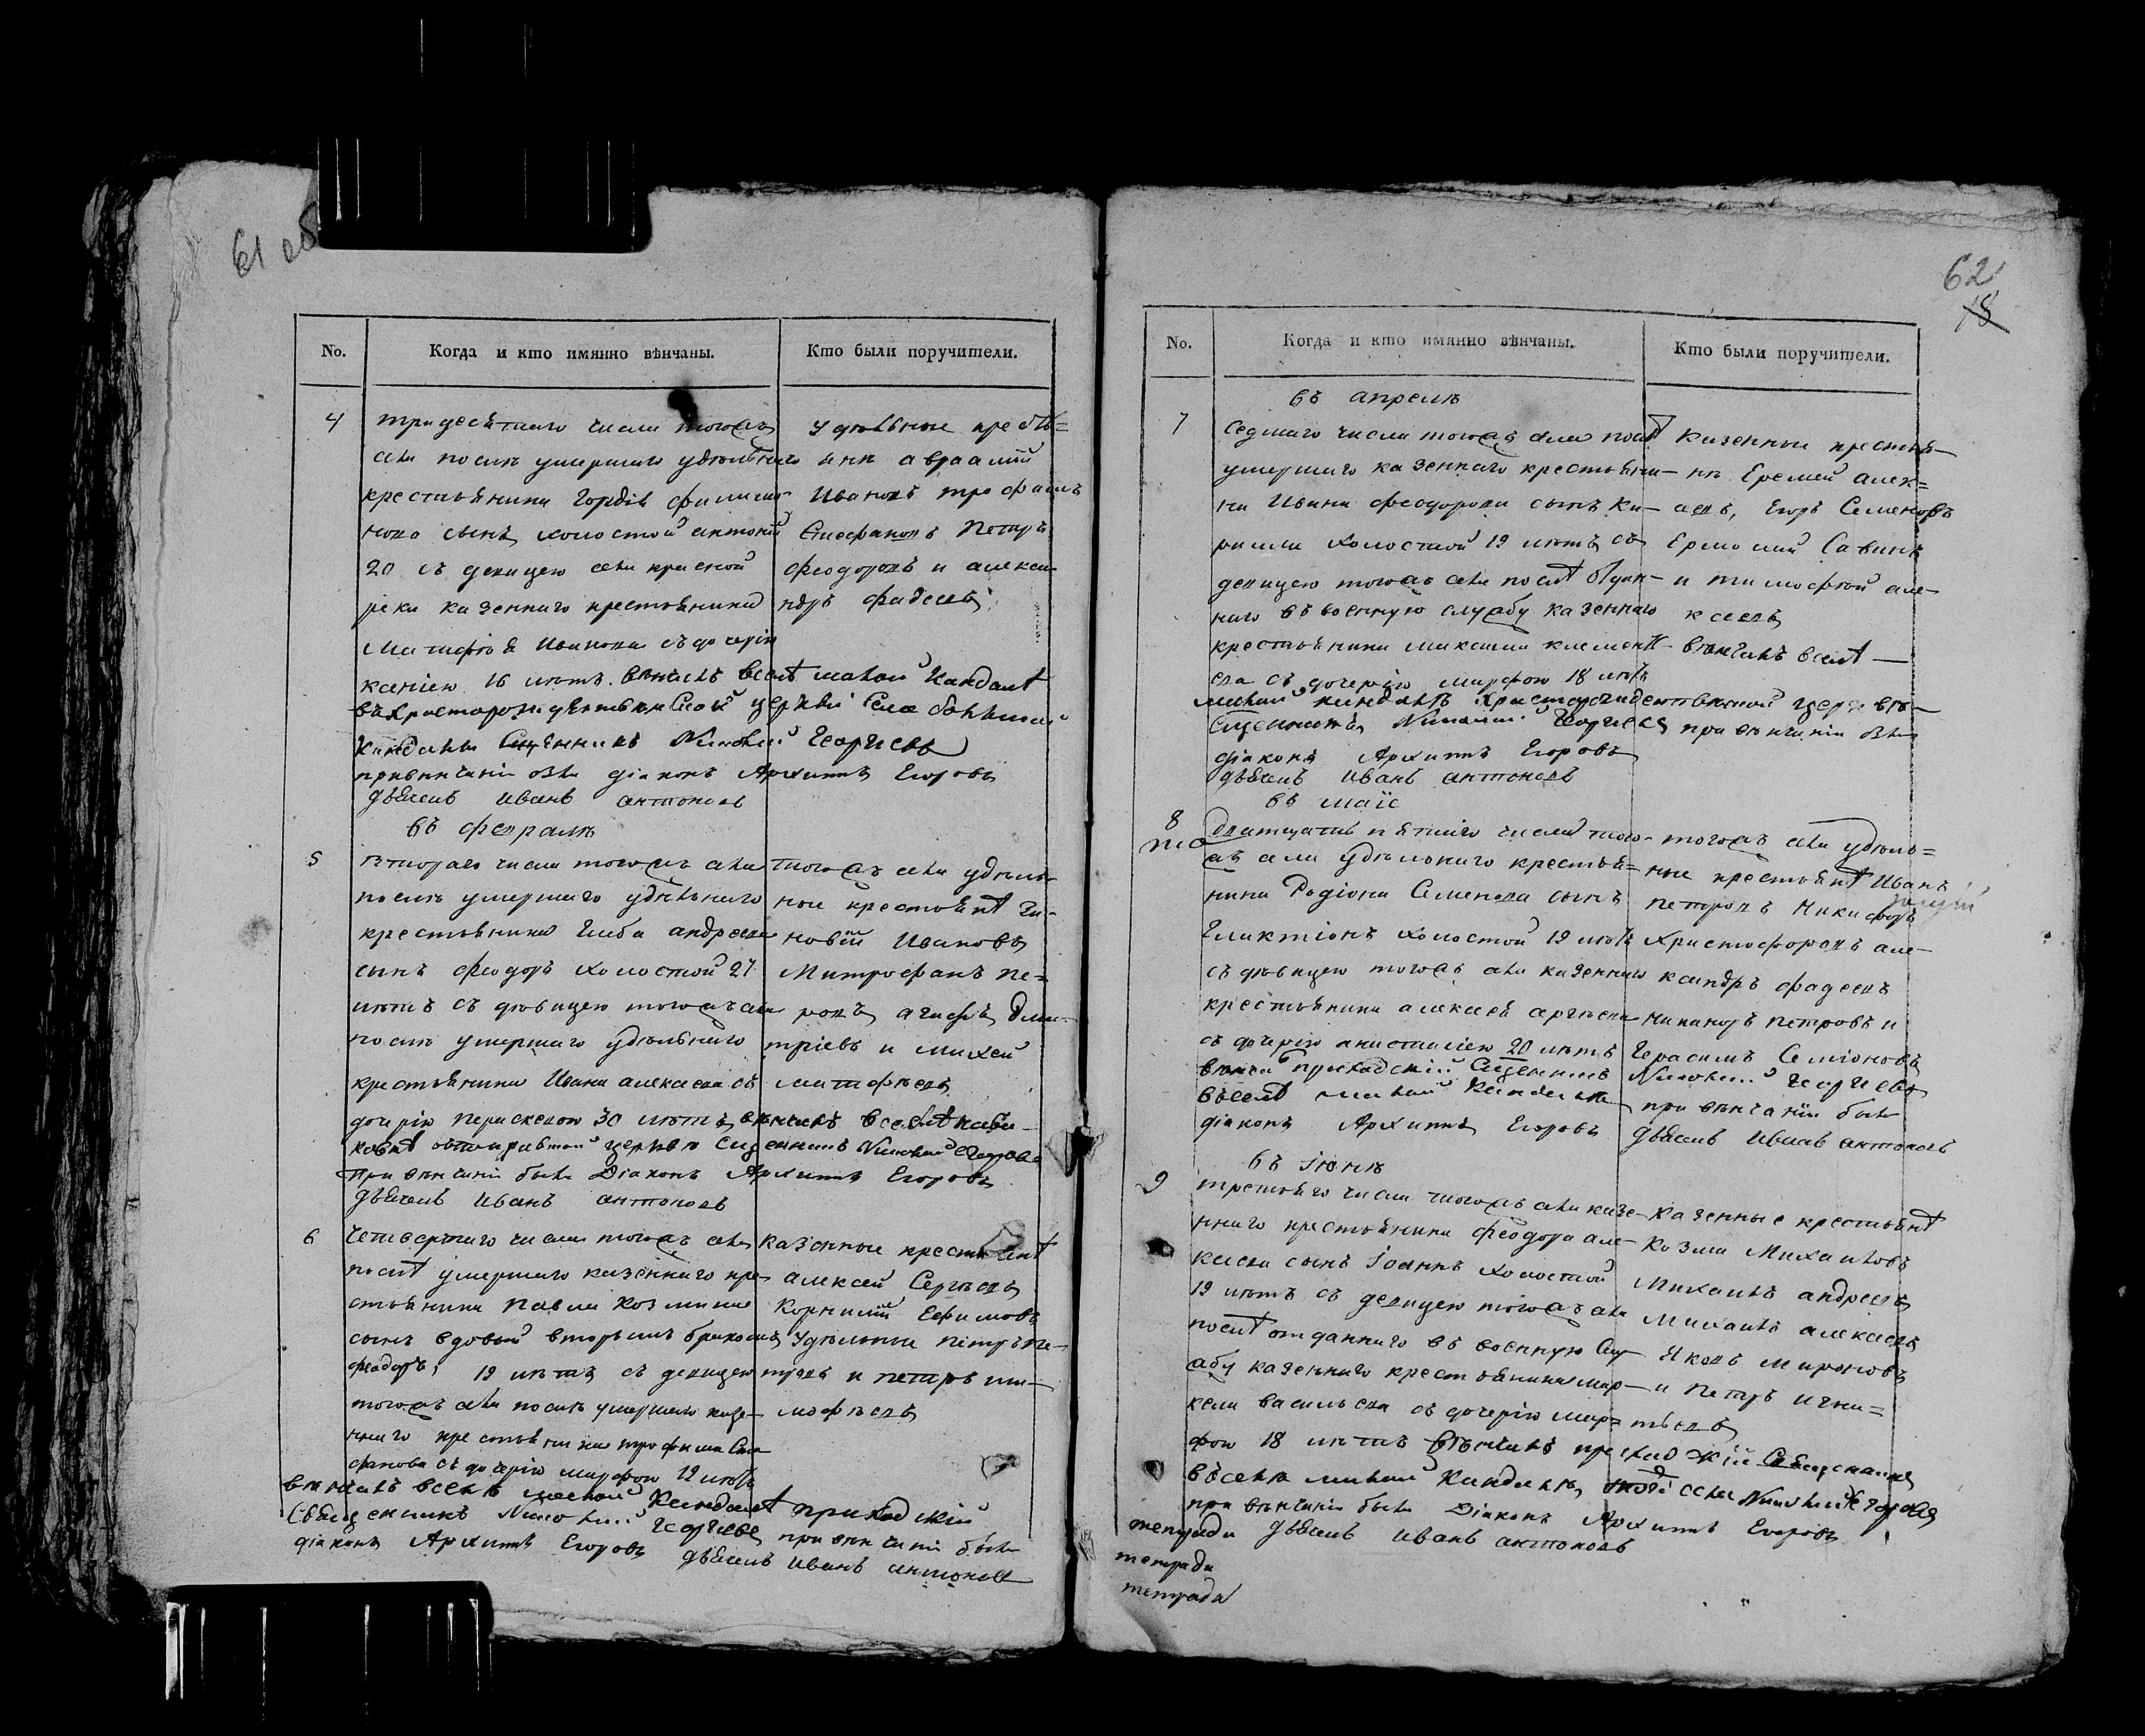 61 об
No. Когда и кто имянно вѣнчаны. Кто были поручители.
4
тридесѣтаго числа тогожъ
села послѣ умершаго удѣльнаго
крестьянина Гордѣя филипо
нова сынъ холостой антоній
20 съ девицею села красной
реки казеннаго крестьянина
Матвѣя Иванова съ дочерію
ксеніею 16 лѣтъ. вѣнчалъ в селѣ малой Кандалѣ
въ христорождественской церкви села большой
Кандалы Священникъ Николай Георгіевъ
при вѣнчаніи были діаконъ Архипъ Егоровъ
дьячекъ иванъ антоновъ
Удѣльные кресть=
янѣ авраамій
Ивановъ трофимъ
Стефановъ Петръ
феодоровъ и алекса-
ндръ фадеевъ
въ февралѣ
5
втораго числа тогожъ села
послѣ умершаго удѣльнаго
крестьянина Глеба андреева
сынъ феодоръ холостой 21
лѣтъ съ дѣвицею тогожъ села
послѣ умершаго удѣльнаго
крестьянина Ивана алексеева съ
дочерію параскевою 30 лѣтъ, вѣнчалъ в селѣ
церкви Священникъ Николай
При вѣнчаніи были Діаконъ Архипъ Егоровъ
дьячекъ иванъ антоновъ
тогожъ села удѣль-
ные крестьянѣ Зи-
новій Ивановъ
Митрофанъ пе=
ровъ, Дми-
тріевъ и михей
матвѣевъ
6
Четвертаго числа тогожъ села
послѣ умершаго казеннаго кре-
стьянина павла козмина
сынъ вдовый вторымъ бракомъ
феодоръ, 19 лѣтъ съ девицею
тогожъ села послѣ умершаго казе-
ннаго крестьянина трофима Сте
фанова съ дочерію марфою 19 лѣтъ
вѣнчалъ в селѣ малой Кандалѣ приходскій
Священникъ Николай Георгіевъ при вѣнчаніи были
діаконъ Архипъ Егоровъ дьячекъ иванъ антоновъ
казенные крестьянѣ
алексей Сергѣевъ
Корнилій Ефимовъ
удѣльные петръ пе-
тровъ и петръ ти-
мофѣевъ
62
18
No. Когда и кто имянно вѣнчаны. Кто были поручители.
въ апрелѣ
7
Седмаго числа тогожъ села послѣ
умершаго казеннаго крестьяни-
на Ивана феодорова сынъ Ки-
рилла холостой 19 лѣтъ съ
девицею тогожъ села послѣ отдан-
наго въ военную службу казеннаго
крестьянина максима клемент-
ева съ дочерію марфою 18 лѣтъ
малой кандалѣ христорождественской церкви
Священникъ Николай Георгіевъ при вѣнчаніи были
діаконъ Архипъ Егоровъ
дьячекъ иванъ антоновъ
казенные крестья-
нѣ Еремей алек=
евъ, Егоръ Семеновъ
Ермолай Савинъ
и тимофей але-
ксеевъ
вѣнчалъ в селѣ
въ маіе
8
Двадцать пятаго числа того-
жъ села удѣльнаго крестья=
нина Родіона Семенова сынъ
Галактіонъ холостой 19 лѣтъ
съ дѣвицею тогожъ села казеннаго
крестьянина алексея сергѣева
съ дочерію анастасіею 20 лѣтъ
вѣнчалъ приходскій Священникъ Николай Георгіевъ
въ селѣ малой Кандалѣ при вѣнчаніи были
діаконъ Архипъ Егоровъ дьячекъ иванъ антоновъ
тогожъ села удѣль=
ные крестьянѣ Иванъ
петровъ Никифоръ
Христофоровъ але-
ксандръ фадеевъ
никаноръ петровъ и
Герасимъ Семіоновъ
въ іюнѣ
9
третьяго числа тогожъ села казе-
ннаго крестьянина феодора але-
ксеева сынъ Іоаннъ холостой
19 лѣтъ съ девицею тогожъ села
послѣ отданнаго въ военную слу-
жбу казеннаго крестьянина мар-
кела васильева съ дочерію мар=
фою 18 лѣтъ вѣнчалъ приходскій Священникъ
въ селѣ малой Кандалѣ, Николай Георгіевъ
при вѣнчаніи были Діаконъ Архипъ Егоровъ
тетради дьячекъ иванъ антоновъ
тетради
тетради
казенные крестьянѣ
Козма Михаиловъ
Михаилъ андреевъ
Михаилъ алексеевъ
Яковъ мироновъ
и Петръ игна=
тьевъ